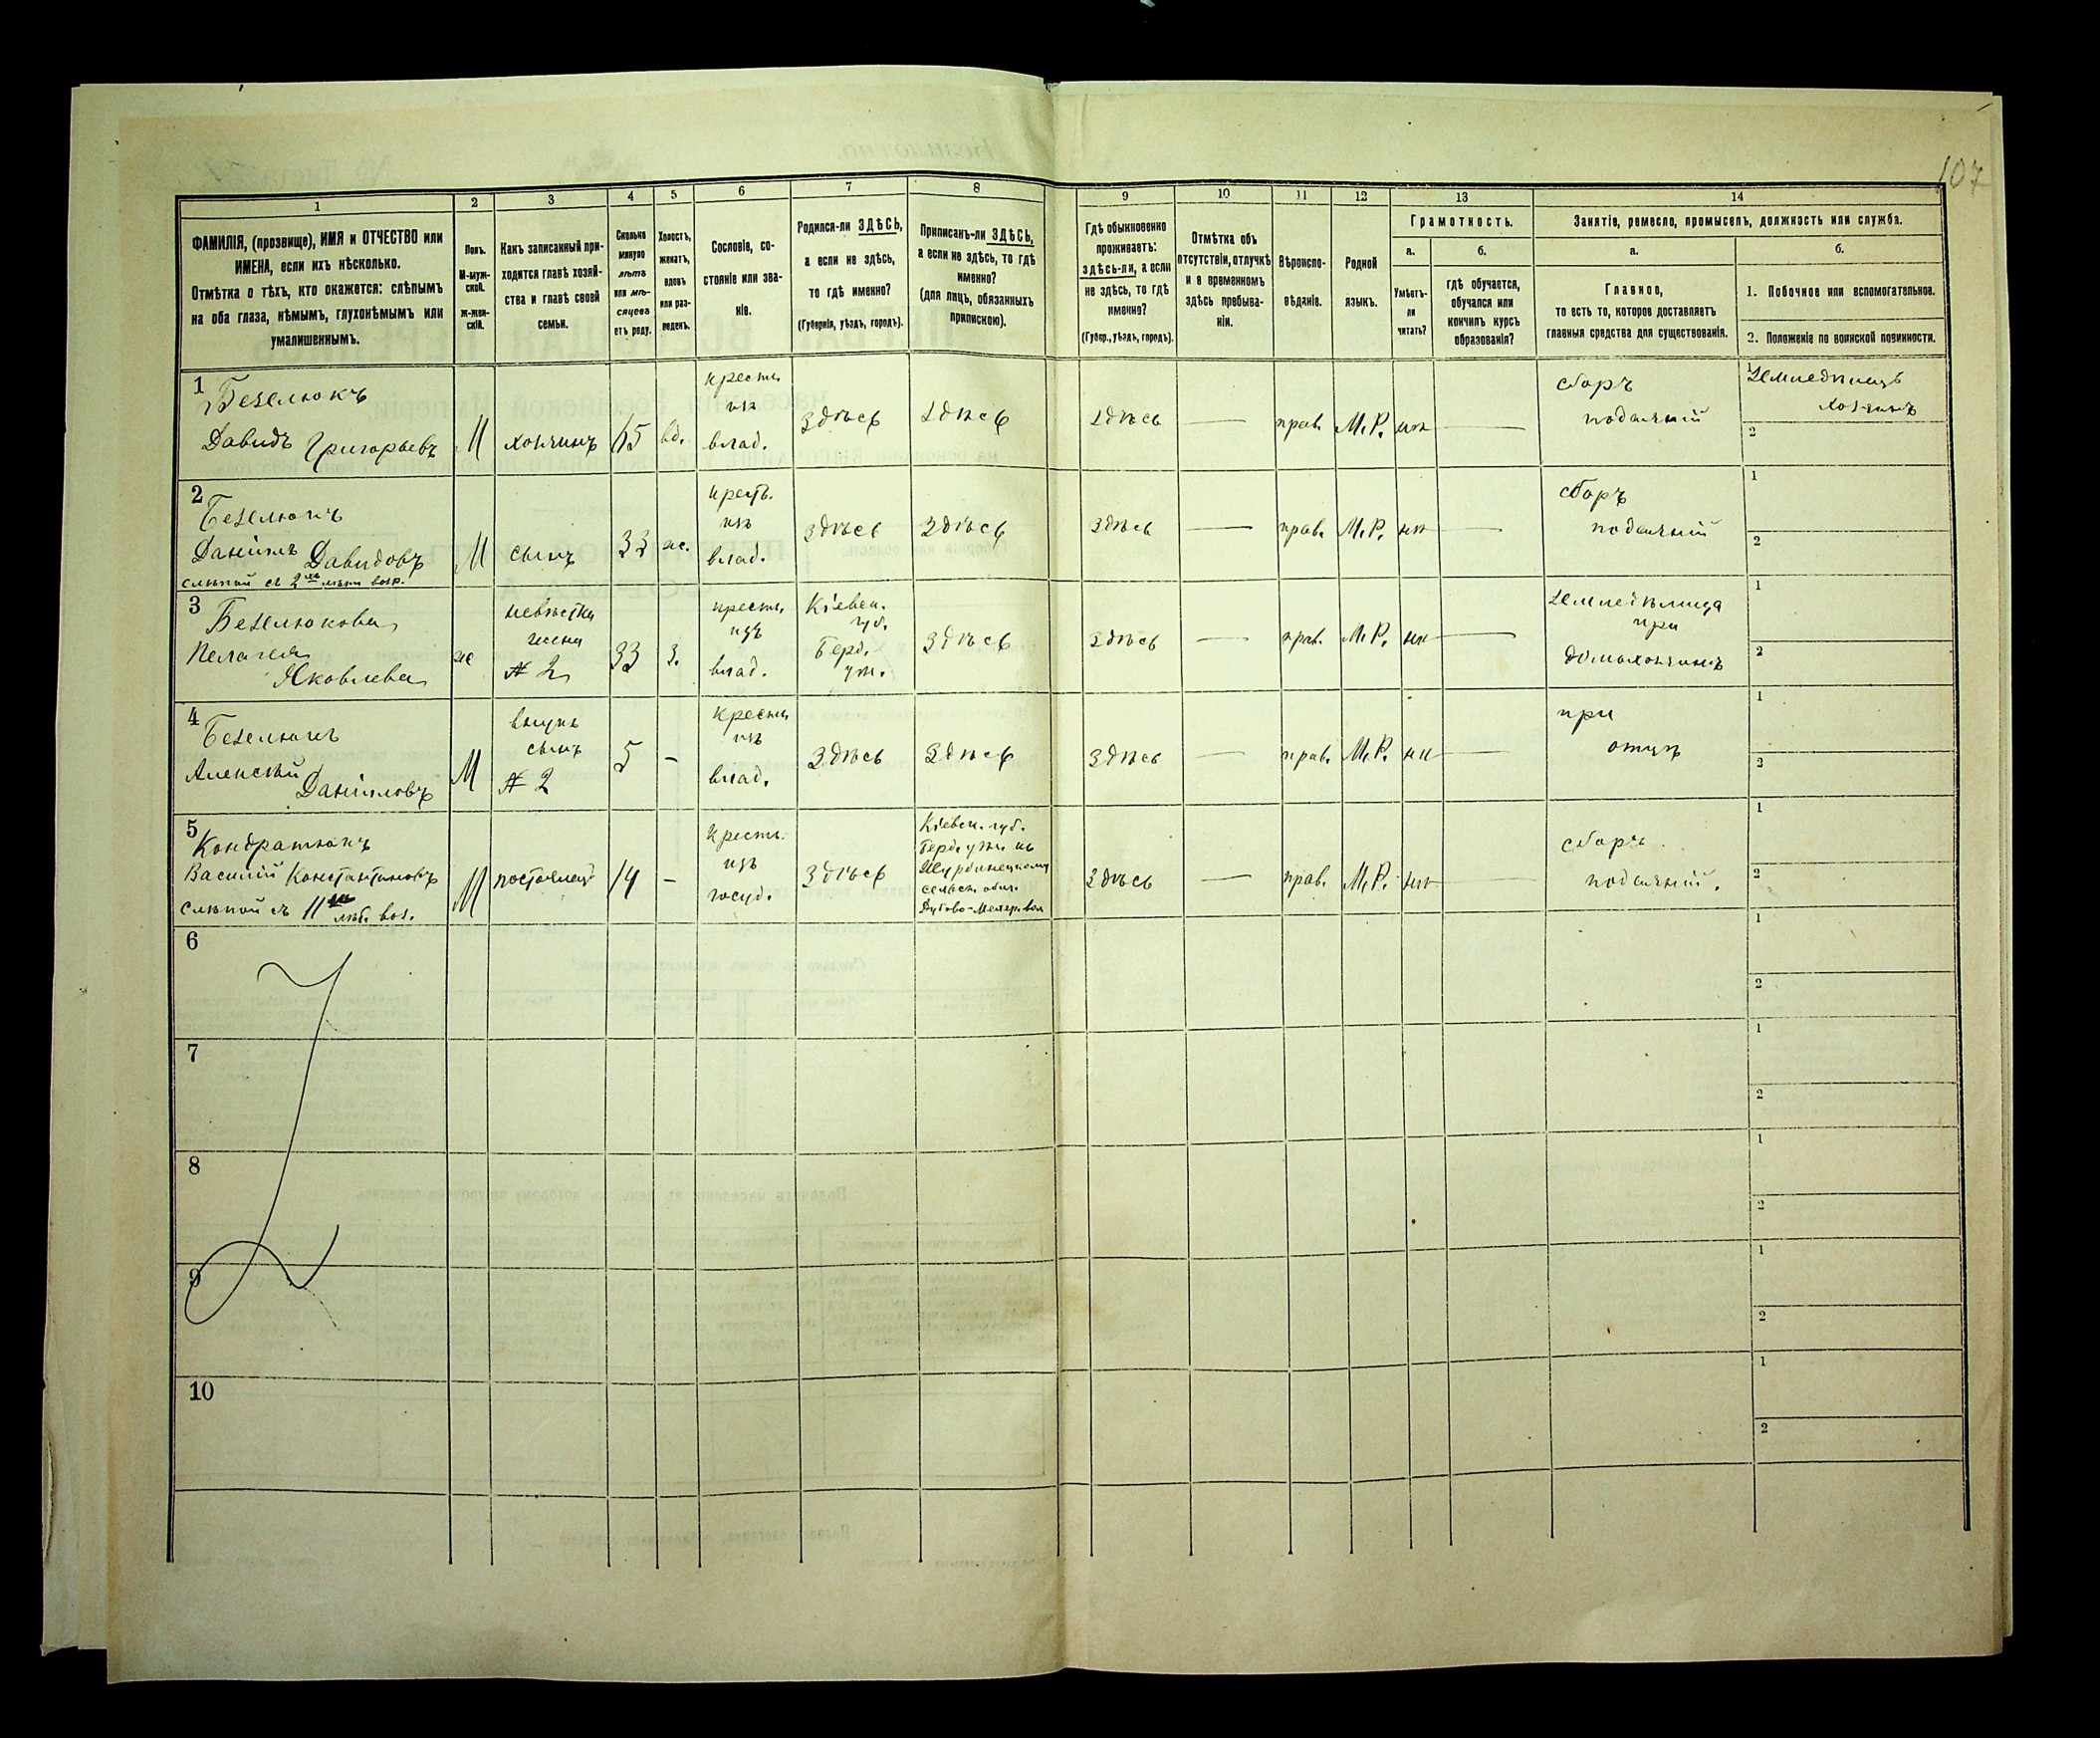 107
1 2 3 4 5 6 7 8 9 10 11 12 13 14
ФАМИЛІЯ, (прозвище), ИМЯ и ОТЧЕСТВО или
ИМЕНА, если ихъ нѣсколько.
Отмѣтка о тѣхъ, кто окажется: слѣпымъ
на оба глаза, нѣмымъ, глухонѣмымъ или
умалишеннымъ.
Полъ.
М-муж-
ской.
Ж-жен-
скій.
Какъ записанный при-
ходится главѣ хозяй-
ства и главѣ своей
семьи.
Сколько
минуло
лѣтъ
или мѣ-
сяцевъ
отъ роду.
Холостъ,
женатъ,
вдовъ
или раз-
веденъ.
Сословіе, со-
стояніе или зва-
ніе.
Родился-ли ЗДѢСЬ,
а если не здѣсь,
то гдѣ именно?
(Губернія, уѣздъ, городъ).
Приписанъ-ли ЗДѢСЬ,
а если не здѣсь, то гдѣ
именно?
(для лицъ, обязанныхъ
припискою).
Гдѣ обыкновенно
проживаетъ:
здѣсь-ли, а если
не здѣсь, то гдѣ
именно?
(Губер., уѣздъ, городъ).
Отмѣтка объ
отсутствіи, отлучкѣ
и о временномъ
здѣсь пребыва-
ніи.
Вѣроиспо-
вѣданіе.
Родной
языкъ.
Грамотность.
а.
Умѣетъ-
ли
читать?
б.
гдѣ обучается,
обучался или
кончилъ курсъ
образованія?
Занятіе, ремесло, промыселъ, должность или служба.
а.
Главное,
то есть то, которое доставляетъ
главныя средства для существованія.
б.
1. Побочное или вспомогательное.
2. Положеніе по воинской повинности.
1
Безелюкъ
Давидъ Григорьевъ
М
хозяинъ
65
вд.
крестн
изъ
влад.
Здѣсь
Здѣсь
Здѣсь
—
прав.
М.Р.
нѣ
—
сборъ
подаяній
1
Земледѣлецъ
хозяинъ
2
2
Безелюкъ
Даніилъ Давидовъ
слѣпой съ 2хъ лѣтн возр.
М
сынъ
33
ж.
крест.
изъ
влад.
Здѣсь
Здѣсь
Здѣсь
—
прав.
М.Р.
нѣ
—
сборъ
подаяній
1
2
3
Безелюкова
Пелагея
Яковлева
ж
невѣстка
жена
№ 2
33
з.
крестн
изъ
влад.
Кіевск.
губ.
Берд.
уѣз.
Здѣсь
Здѣсь
—
прав.
М.Р.
нѣ
—
земледѣлица
при
домохозяинѣ
1
2
4
Безелюкъ
Алексѣй
Даніиловъ
М
внукъ
сынъ
№ 2
5
–
крестн
изъ
влад.
Здѣсь
Здѣсь
Здѣсь
—
прав.
М.Р.
нѣ
—
при
отцѣ
1
2
5
Кондратюкъ
Василій Константиновъ
слѣпой съ 11 лѣт. воз.
М
постоялецъ
14
–
крестн.
изъ
госуд.
Здѣсь
Кіевск. губ.
Берд. уѣз.
сельск. общ.
Здѣсь
—
прав.
М.Р.
нѣ
—
сборъ
подаяній.
1
2
6
1
2
7
1
2
8
1
2
9
1
2
10
1
2